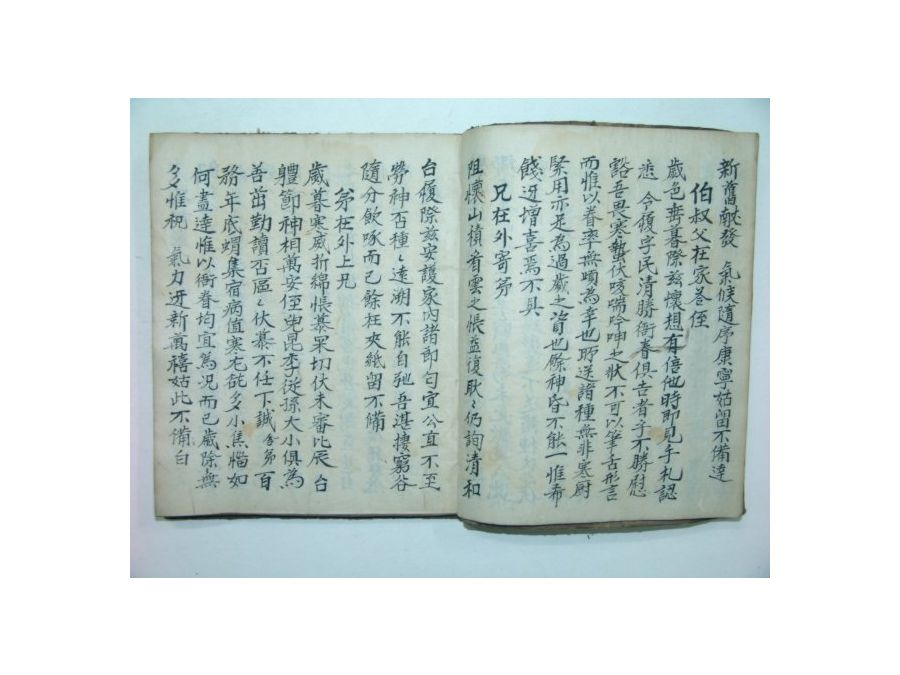 新舊献發　氣候隨序康寧姑留不備達
伯叔父在家答侄
歲色垂暮際玆懷想有倍他時即見手札認
悉　今履字民清勝衙眷俱吉者乎不勝慰
豁吾畏寒蟄伏咳喘吟呻之狀不可以筆舌形言
而惟以眷率無頃為幸也耶送諸種無非寒厨
緊用亦足為過歲之資也餘神昏不能一惟希
餞迓增喜焉不具
兄在外寄弟
阻懷山積首雲之悵益復耿〻仍詢清和
台履際玆安護家內諸節勻宜公直不至
勞神否種〻遠溯不能自弛吾湛捿窮谷
隨分飲啄而已餘在夾紙留不備
弟在外上兄
歲暮寒威折綿悵慕杲切伏未審比辰　台
體節神相萬安侄
昆季從孫大小俱為
善苗勤讀否區〻伏慕不任下誠
弟百
務年底蝟集宿病值寒
多小焦惱如
何盡達惟以衙眷均宜為况而已歲除無
多惟祝　氣力迓新萬禧姑此不備白